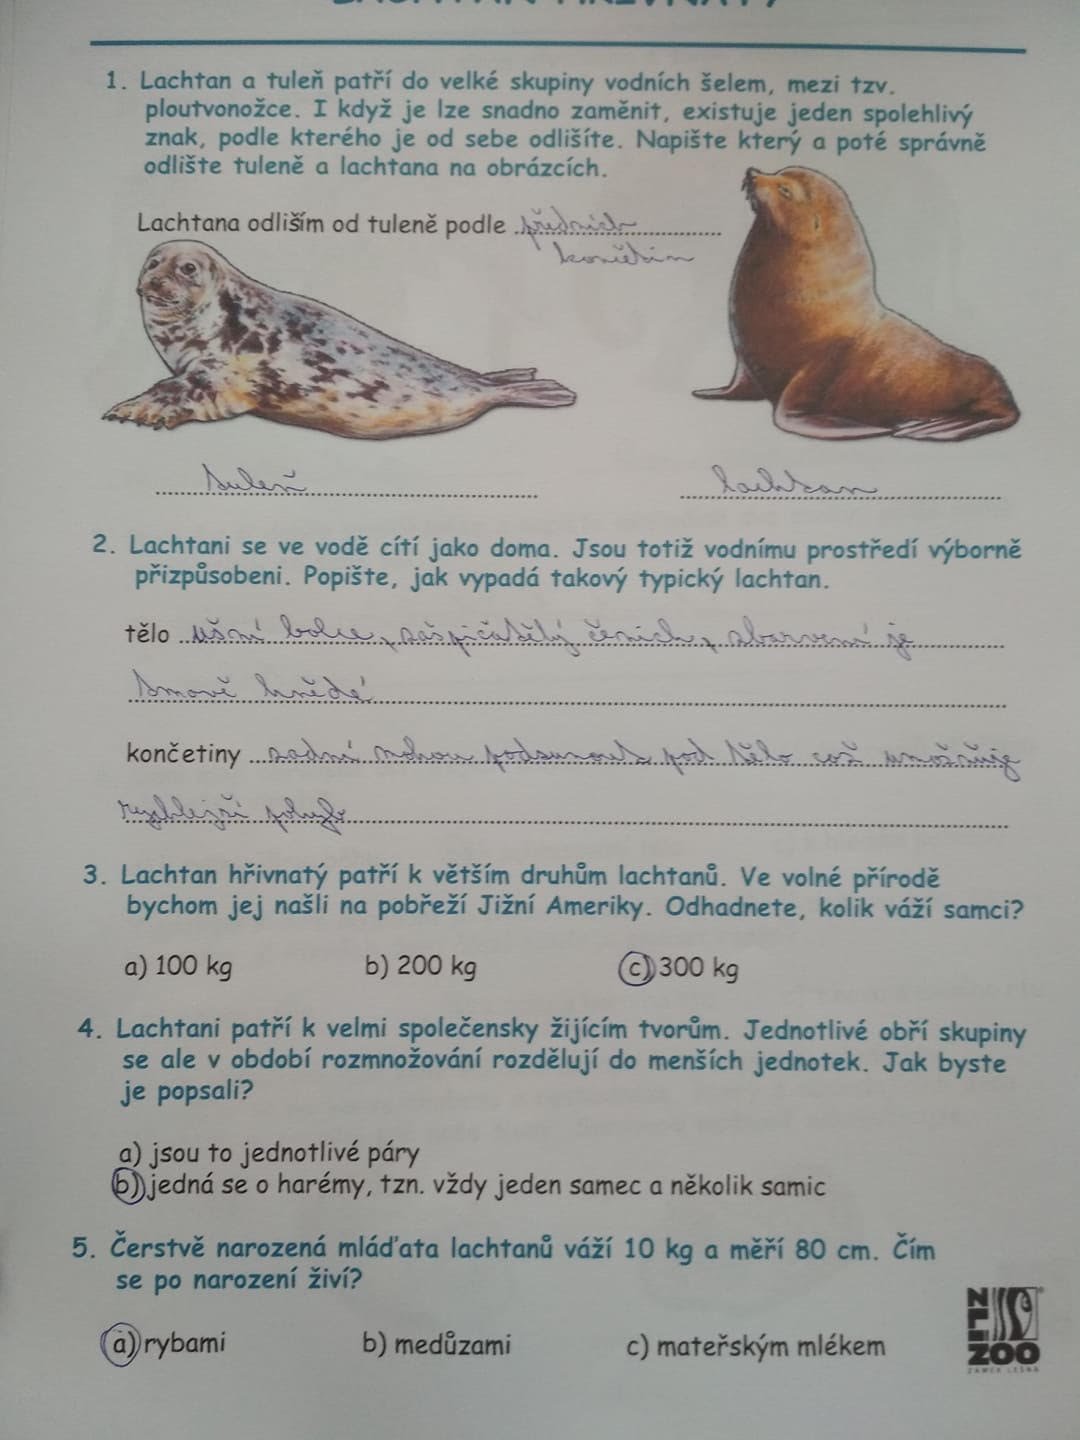 1. Lachtan a tuleň patří do velké skupiny vodních šelem, mezi tzv.
ploutvonožce. I když je lze snadno zaměnit, existuje jeden spolehlivý
znak, podle kterého je od sebe odlišíte. Napište který a poté správně
odlište tuleně a lachtana na obrázcích.
Lachtana odliším od tuleně podle předních
končetin
tuleň
lachtan
2. Lachtani se ve vodě cítí jako doma. Jsou totiž vodnímu prostředí výborně
přizpůsobeni. Popište, jak vypadá takový typický lachtan.
tělo ušní bolce, zašpičatělý čenich, zbarvení je
tmavě hnědé
končetiny zadní mohou podsunout pod tělo což umožňuje
rychlejší pohyb
3. Lachtan hřivnatý patří k větším druhům lachtanů. Ve volné přírodě
bychom jej našli na pobřeží Jižní Ameriky. Odhadnete, kolik váží samci?
a) 100 kg b) 200 kg c) 300 kg
4. Lachtani patří k velmi společensky žijícím tvorům. Jednotlivé obří skupiny
se ale v období rozmnožování rozdělují do menších jednotek. Jak byste
je popsali?
a) jsou to jednotlivé páry
b) jedná se o harémy, tzn. vždy jeden samec a několik samic
5. Čerstvě narozená mláďata lachtanů váží 10 kg a měří 80 cm. Čím
se po narození živí?
a) rybami b) medůzami c) mateřským mlékem
ZLIN
ZOO
ZÁMEK LEŠNÁ